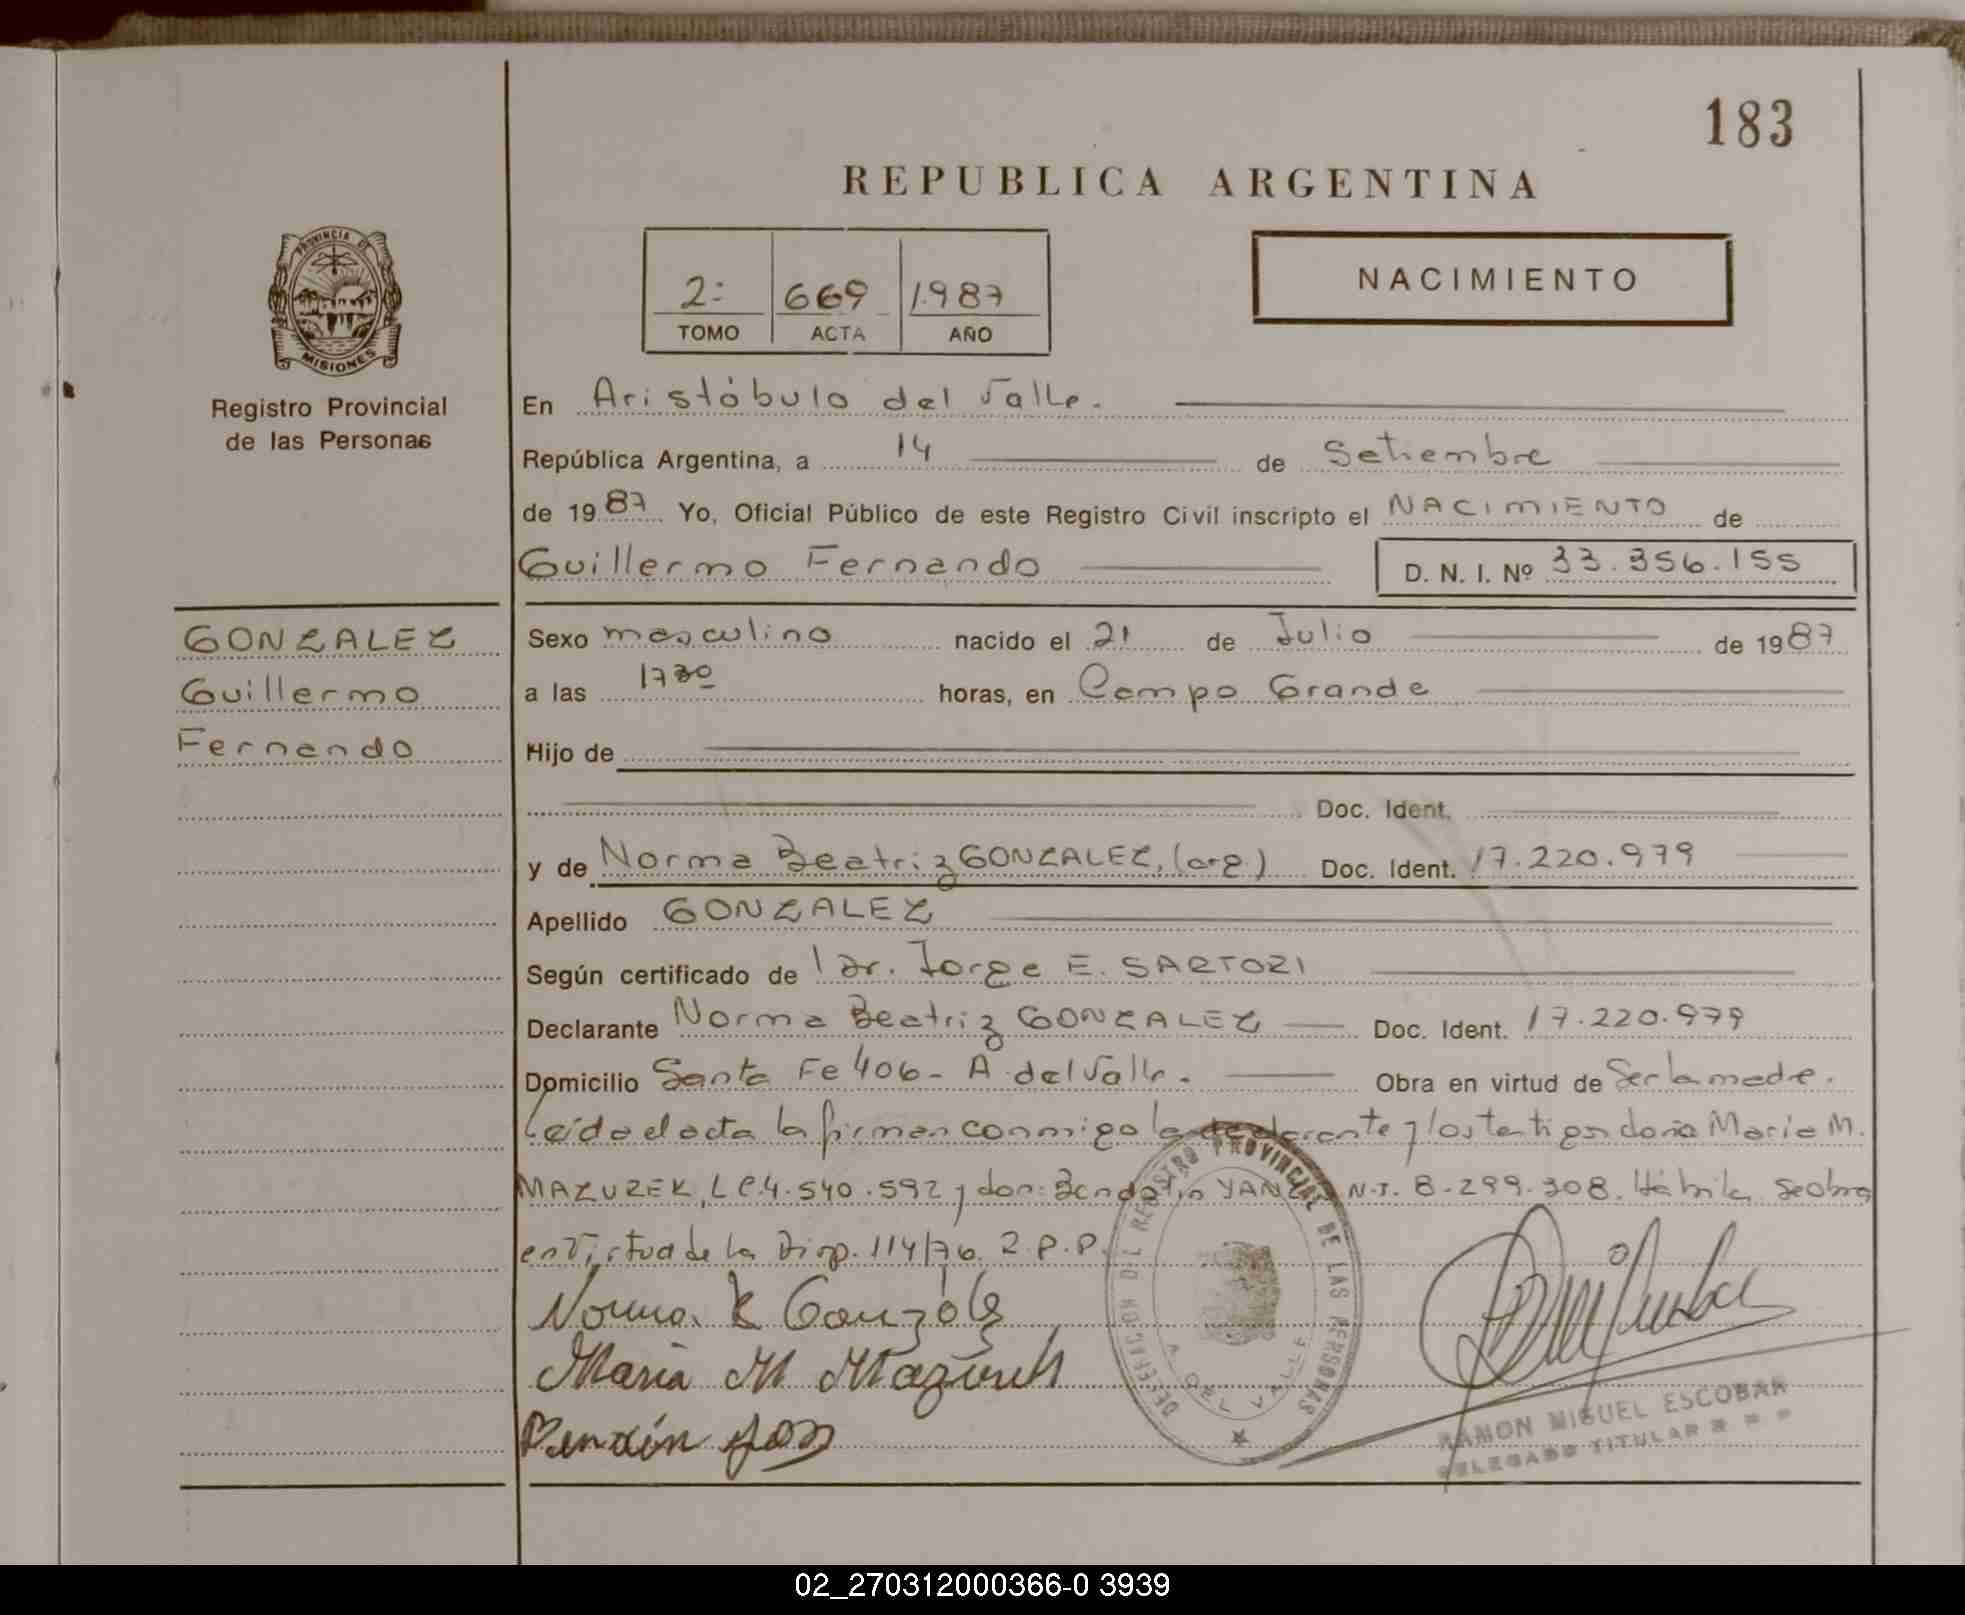 183
REPUBLICA ARGENTINA
2: 669 1.987
TOMO ACTA AÑO
NACIMIENTO
PROVINCIA DE
MISIONES
Registro Provincial
de las Personas
En Aristóbulo del Valle.
República Argentina, a 14 de Setiembre
de 1987 Yo, Oficial Público de este Registro Civil inscripto el NACIMIENTO de
Guillermo Fernando D. N. I. Nº 33.356.155
GONZALEZ
Guillermo
Fernando
Sexo masculino nacido el 21 de Julio de 1987
a las 1730 horas, en Campo Grande
Hijo de
Doc. Ident.
y de Norma Beatriz GONZALEZ, (arg.) Doc. Ident. 17.220.979
Apellido GONZALEZ
Según certificado de Dr. Jorge E. SARTORI
Declarante Norma Beatriz GONZALEZ Doc. Ident. 17.220.979
Domicilio Santa Fe 406- A. del Valle. Obra en virtud de Ser la madre.
Leída el acta la firman conmigo la declarante y los testigos doña Maria M.
MAZUREK, LC.4.540.592 y don: N.I. 8.299.308. Hábiles. Se obra
en Virtud de la Disp. 114/76. R.P.P.
Norma B Gonzáles
Maria M Mazurek
DELEGACION DEL REGISTRO PROVINCIAL DE LAS PERSONAS
A. DEL VALLE
RAMON MIGUEL ESCOBAR
DELEGADO TITULAR
02_270312000366-0 3939